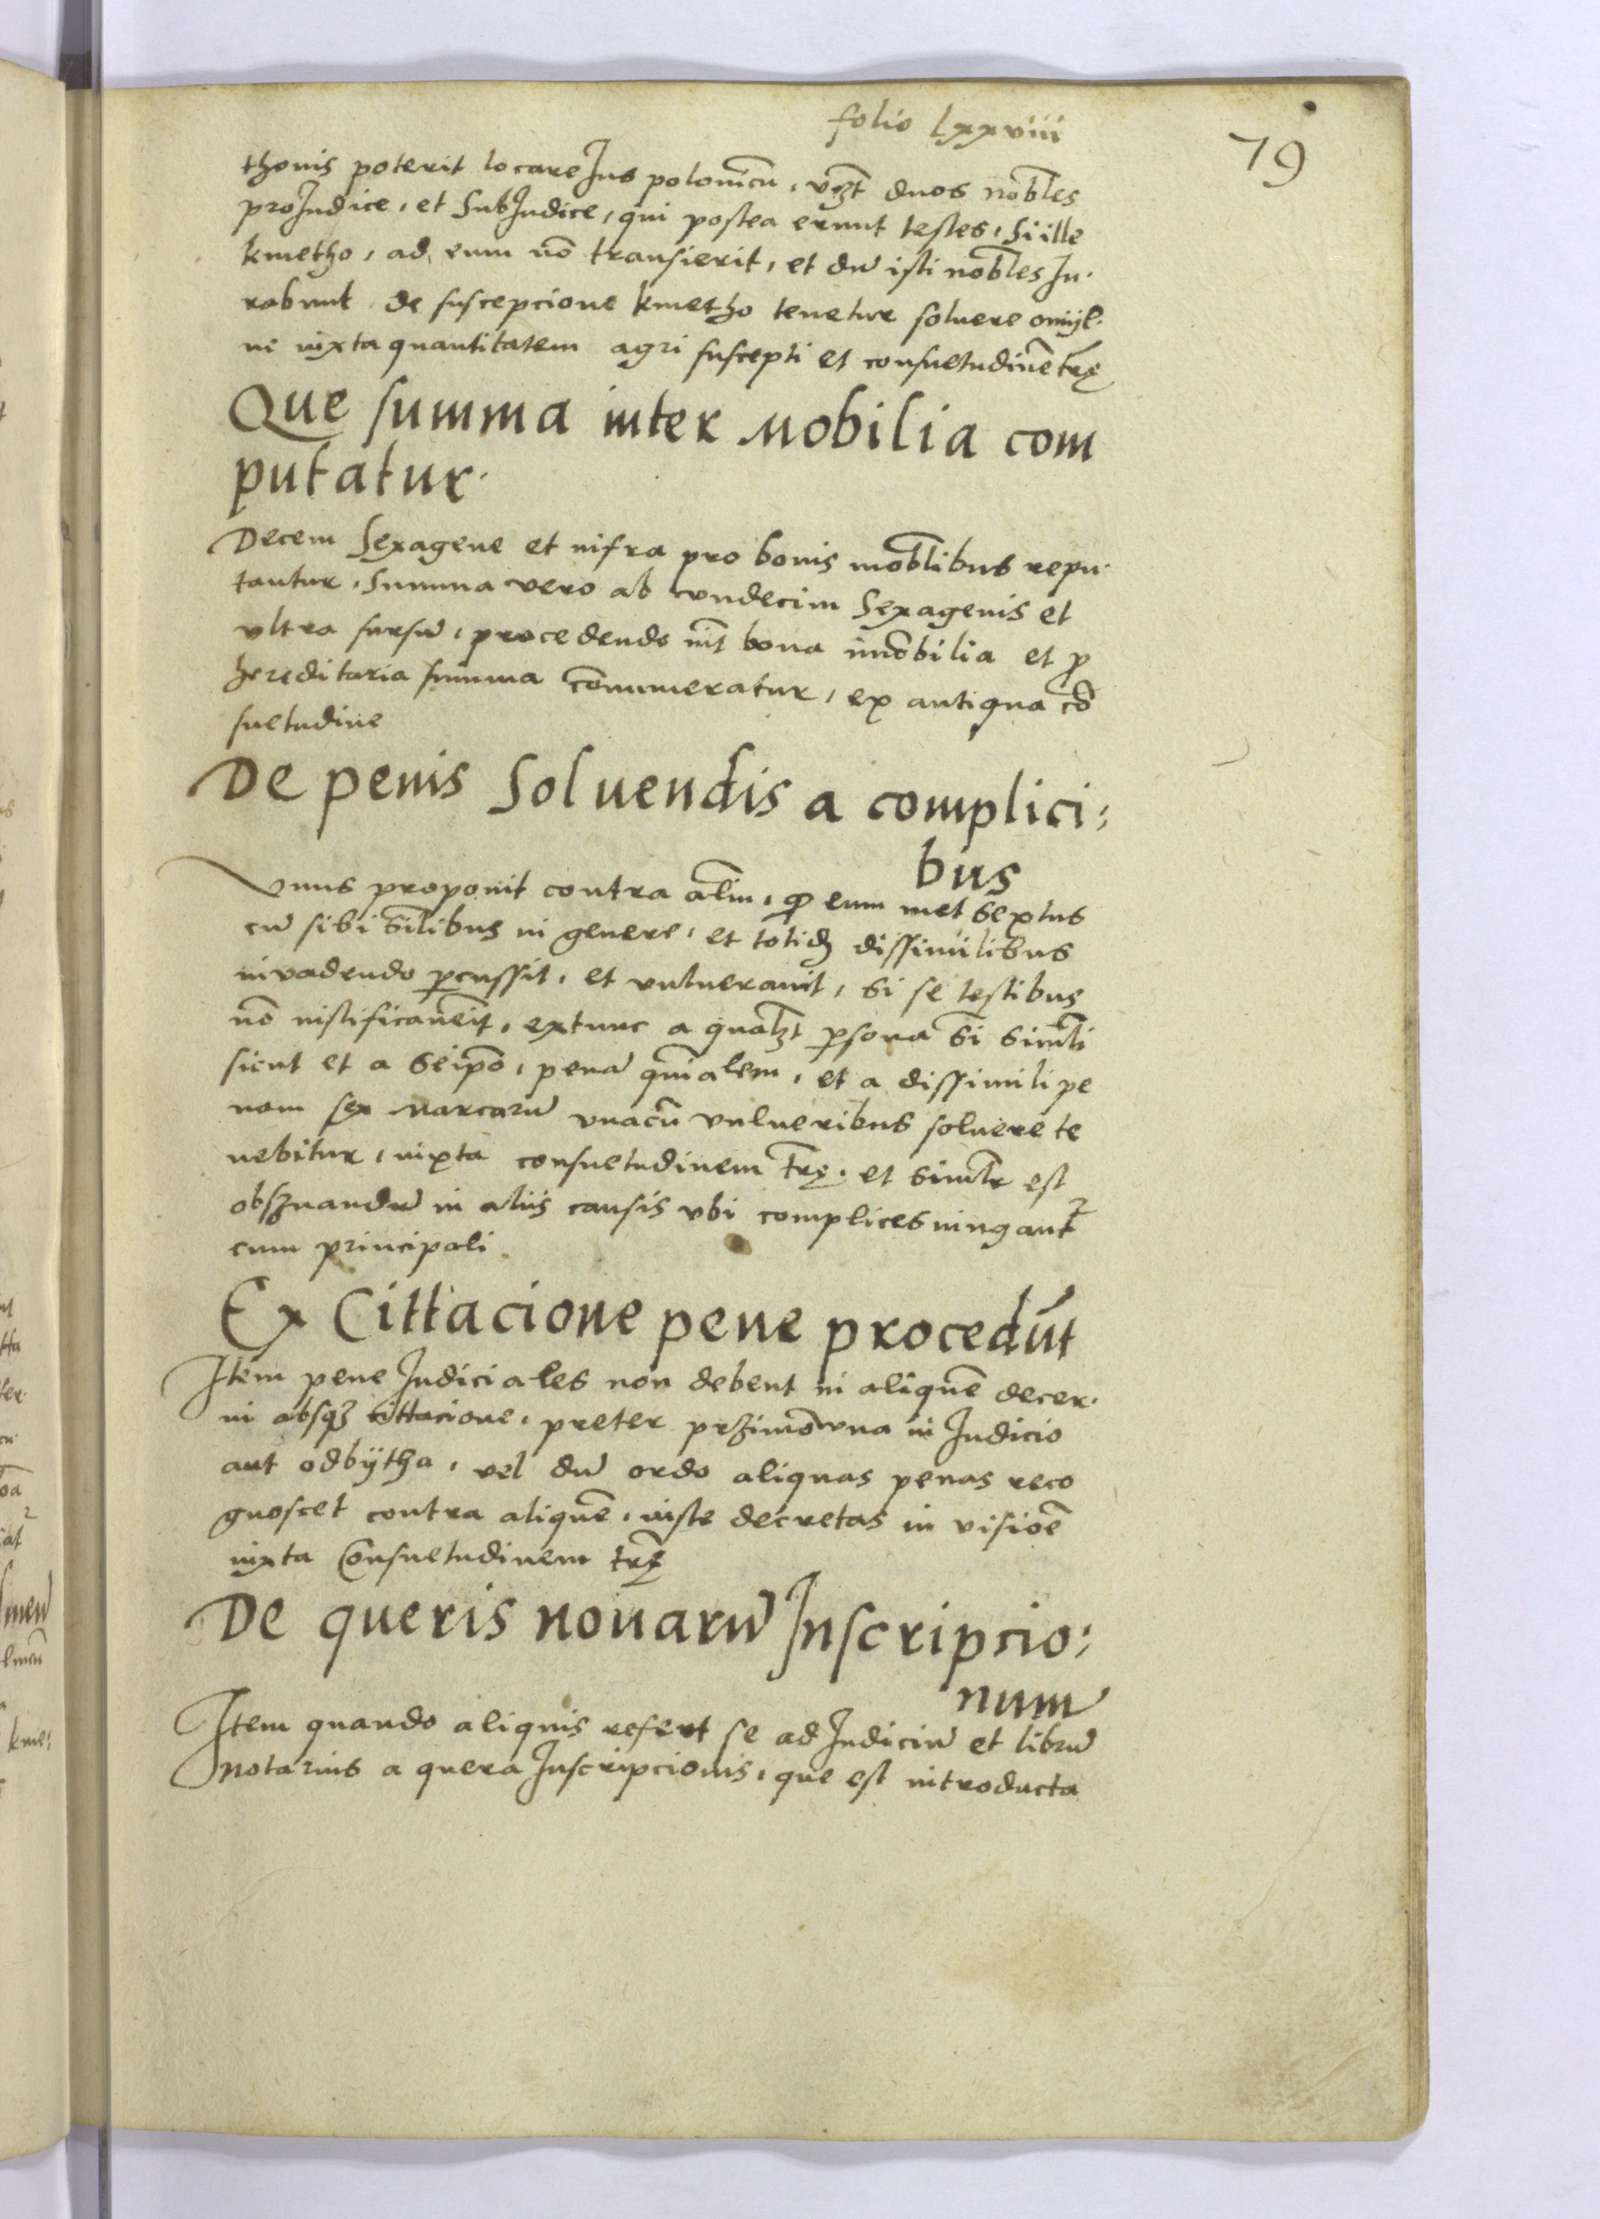 folio lxxviii
79
thonis poterit locare Jus polonicū, vꝫt duos nob̄les
pro Judice, et SubJudice, qui postea erunt testes, Si ille
kmetho, ad eum nō transierit, et dū isti nob̄les Ju-
rabunt de suscepcione kmetho tenetur soluere omÿl-
ne iuxta quantitatem agri suscepti et consuetudinē tr̄ę
Que summa inter Mobilia com
putatur.
Decem Sexagene et infra pro bonis mob̄libus repu-
tantur, Summa vero ab vndecim Sexagenis et
vltra sursū, procedendo int̄ bona imōbilia et ꝓ
hereditaria summa cōnumeratur, ex antiqua cō
suetudine
De penis Soluendis a complici:
bus
Vnus proponit contra al̄m, ꝙ eum met sextus
cū sibi sil̄ibus in genere, et totidꝫ dissimilibus
invadendo ꝑcussit, et vulnerauit, si se testibus
nō iustificauēit, extunc a qual̄ꝫt ꝑsona s̄i simil̄i
sicut et a seip̄o, penā qn̄ialem, et a dissimili pe
nam sex Marcarū vnacū vulneribus soluere te
nebitur, iuxta consuetudinem tr̄ę, et simil̄r est
obsꝫuandū in aliis causis vbi complices iungant²
cum principali
Ex Cittacione pene procedūt
Item pene Judiciales non debent in aliquē decer-
ni absqꝫ cittacione, preter przimōwna in Judicio
aut odbÿtha, vel dū ordo aliquas penas reco
gnoscet contra aliquē, iuste decretas in visiōē
iuxta Consuetudinem tr̄ę
De queris nouarū Inscripcio:
num
Item quando aliquis refert se ad Judiciū et librū
Notarius a quera Inscripcionis, que est introducta